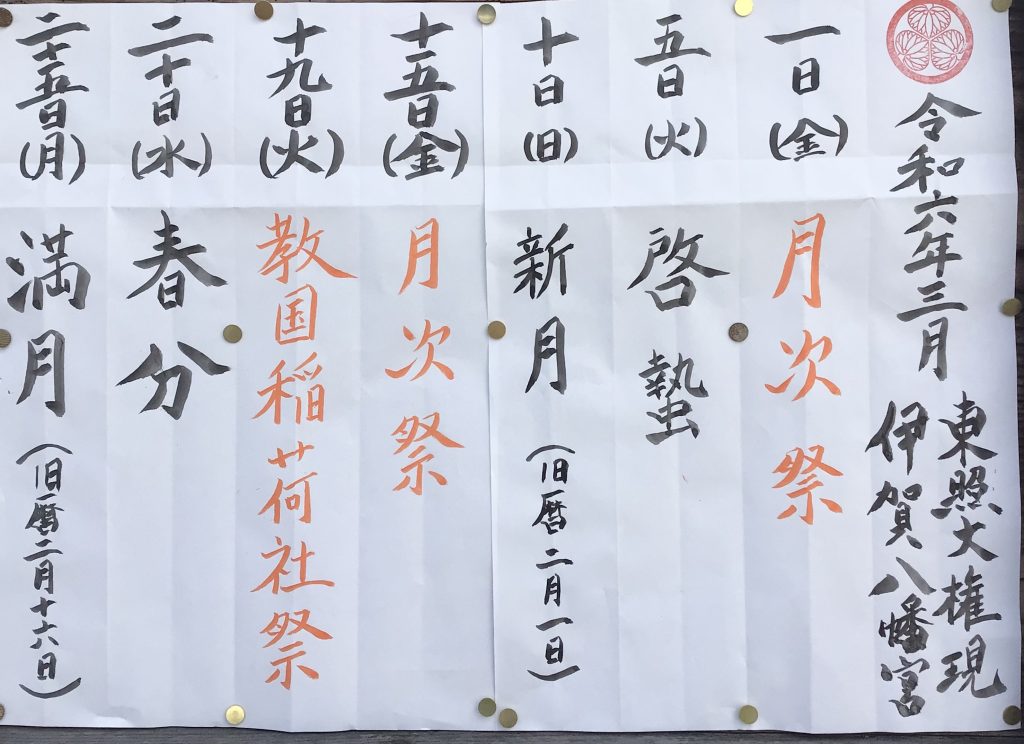 令和六年三月
東照大権現
伊賀八幡宮
一日(金)月次祭
五日(火)啓蟄
十日(日)新月(旧暦二月一日)
十五日(金)月次祭
十九日(火)教国稲荷社祭
二十日(水)春分
二十五日(月)満月(旧暦二月十六日)